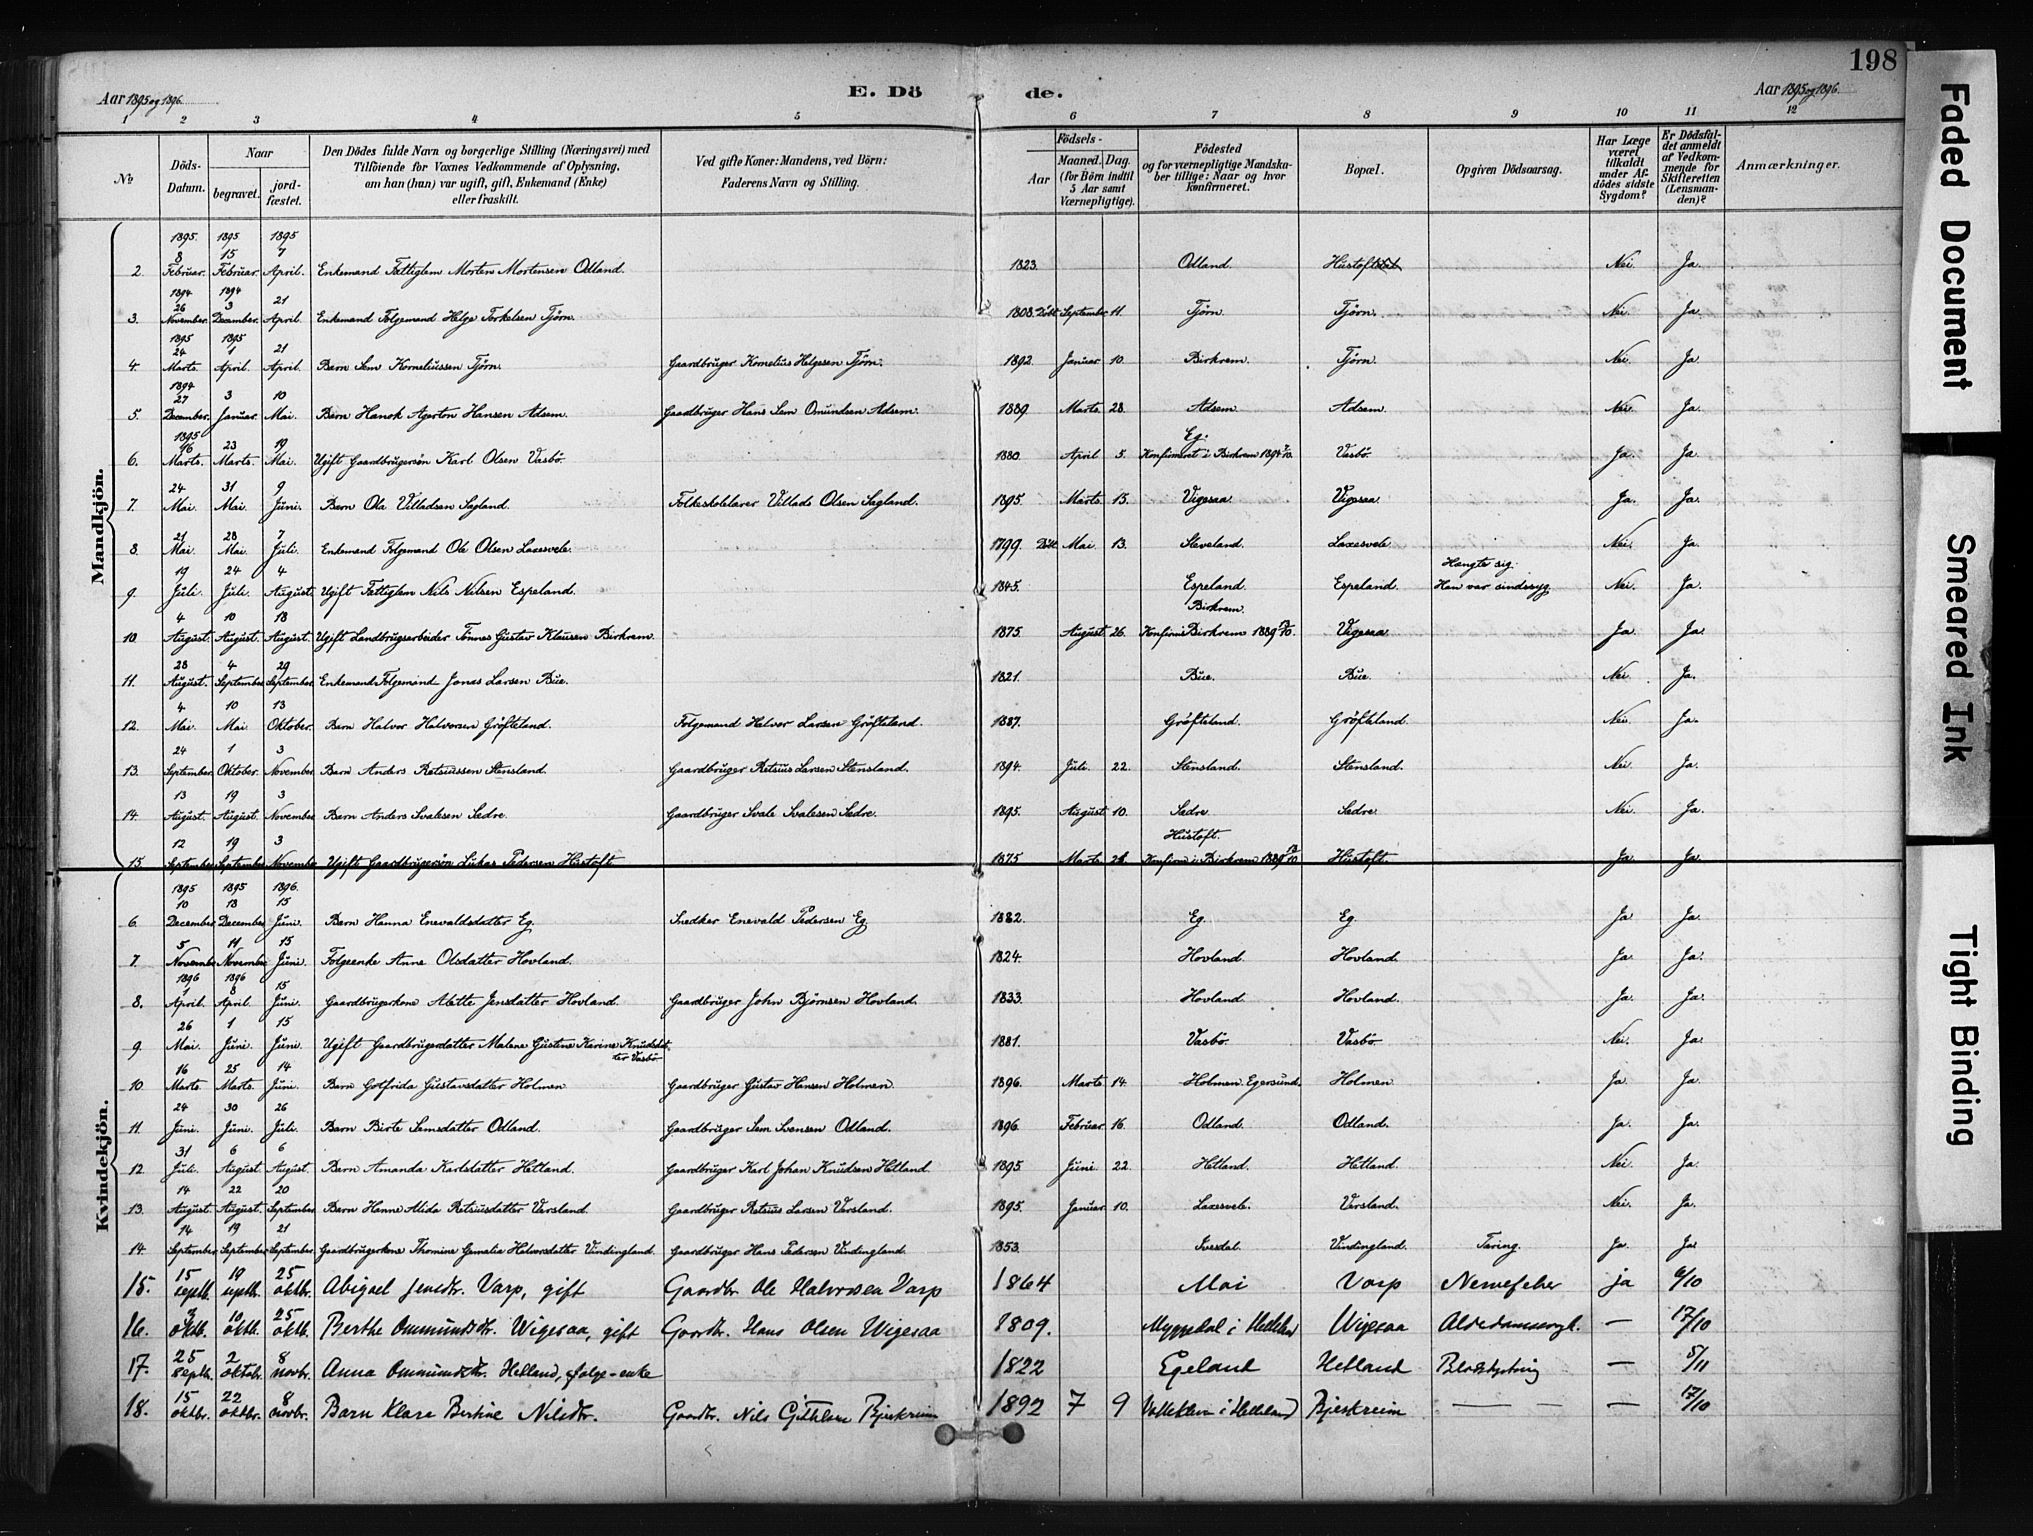 198
Aar 1895 og 1896.
E. Dö
de.
Aar 1895 og 1896.
1 2 3 4 5 6 7 8 9 10 11 12
No
Döds-Datum.
Naar
begravet.
jord-fæstet.
Den Dödes fulde Navn og borgerlige Stilling (Næringsvei) med
Tilföiende for Voxnes Vedkommende af Oplysning,
om han (hun) var ugift, gift, Enkemand (Enke)
eller fraskilt.
Ved gifte Koner: Mandens, ved Börn:
Faderens Navn og Stilling.
Födsels-
Aar
Maaned. Dag.
(for Börn indtil
5 Aar samt
Værnepligtige).
Födested
og for værnepligtige Mandska-
ber tillige: Naar og hvor
konfirmeret.
Bopæl.
Opgiven Dödsaarsag.
Har Læge
været
tilkaldt
under Af-
dödes sidste
Sygdom?
Er Dödsfal-
det anmeldt
af Vedkom-
mende for
Skifteretten
(Lensman-
den)?
Anmærkninger.
Mandkjön.
1895. 1895. 1895
8 15 7
2. Februar. Februar. April. Enkemand Fattiglem Morten Mortensen Odland. 1823. Odland Hustoft Nei. Ja.
1894 1894
26 3 21
3. November. December. April. Enkemand Folgemand Helge Torkelsen Tjörn. 1808. Döbt September 11. Tjörn. Tjörn. Nei. Ja.
1895 1895
24 1 21
4. Marts. April. April. Barn Sem Korneliussen Tjörn. Gaardbruger Kornelius Helgesen Tjörn. 1892. Januar 10. Birkrem. Tjörn. Nei. Ja.
1894
27 3 10
5. December. Januar. Mai. Barn Hanok Agerton Hansen Adsem. Gaardbruger Hans Sem Omundsen Adsem. 1889. Marts 28. Adsem. Adsem. Nei. Ja.
1895
16 23 19 Eg.
6. Marts. Marts. Mai. Ugift Gaardbrugersön Karl Olsen Vasbö. 1880. April 5. Konfirmeret i Birkrem 1894 Vasbö. Ja. Ja.
24 31 9
7. Mai. Mai. Juni. Barn Ola Villadsen Sagland. Folkeskolelærer Villads Olsen Sagland. 1895. Marts 15. Vigesaa. Vigesaa. Ja. Ja.
21 28 7
8. Mai. Mai. Juli. Enkemand Folgemand Ole Olsen Laxesvele. 1799. Döbt Mai 13. Steveland. Laxesvele Nei. Ja.
19 24 4 Hængte sig.
9. Juli. Juli. August. Ugift Fattiglem Nils Nilsen Espeland. 1845. Espeland. Espeland. Han var sindssyg Nei. Ja.
4 10 18 Birkrem.
10. August. August. August. Ugift Landbrugsarbeider Tönnes Gustav Klausen Birkrem. 1875. August 26. Konfirm i Birkrem 1889 Vigesaa. Ja. Ja.
28 4 29
11. August. September. September. Enkemand Folgemand Jonas Larsen Bue. 1821. Bue. Bue. Nei. Ja.
4 10 13
12. Mai. Mai Oktober. Barn Halvor Halvorsen Gröfteland. Folgemand Halvor Larsen Gröfteland. 1887. Gröfteland. Gröfteland. Nei. Ja.
24 1 3
13. September. Oktober. November. Barn Anders Retsiussen Stensland. Gaardbruger Retsius Larsen Stensland. 1894. Juli. 22. Stensland. Stensland. Nei. Ja.
13 19 3
14. August. August. November. Barn Anders Svalesen Sædre. Gaardbruger Svale Svalesen Sædre. 1895. August 10. Sædre. Sædre. Nei. Ja.
12 19 3 Hustoft.
15. September. September. November Ugift Gaardbrugersön Lukas Pedersen Hustoft. 1875. Marts 28. Konfirm i Birkrem 1889 Hustoft. Ja. Ja.
Kvindekjön.
1895 1895 1896.
10 18 15
6. December December Juni. Barn Hanna Enevaldsdatter Eg. Snedker Enevald Pedersen Eg 1882. Eg. Eg. Ja. Ja.
5 11 15
7. November November Juni. Folgeenke Anne Olsdatter Hovland. 1824. Hovland. Hovland. Ja. Ja.
1896 1896
1 8 15
8. April. April. Juni. Gaardbrugerkone Alette Jensdatter Hovland Gaardbruger John Bjørnsen Hovland. 1833. Hovland. Hovland. Ja. Ja.
26 1 15
9. Mai. Juni. Juni. Ugift Gaardbrugerdatter Malene Gustine Karine Knudsdat-
ter Vasbö 1881. Vasbö. Vasbö. Nei. Ja.
16 25 14
10. Marts. Marts. Juni. Barn Gotfrida Gustavsdatter Holmen Gaardbruger Gustav Hansen Holmen. 1896. Marts 14. Holmen Egersund. Holmen Ja. Ja.
24 30 26
11. Juni. Juni. Juli. Barn Birte Semsdatter Odland. Gaardbruger Sem Svensen Odland. 1896. Februar 16. Odland. Odland. Ja. Ja.
31 6 6
12. Juli. August August. Barn Amanda Karlsdatter Hetland. Gaardbruger Karl Johan Knudsen Hetland 1895 Juni 22. Hetland. Hetland. Nei. Ja.
14 22 20
13. August. August. September. Barn Hanne Alida Retsiusdatter Versland. Gaardbruger Retsius Larsen Versland. 1895. Januar. 10. Laxesvele. Versland. Nei. Ja.
14 19 21
14. September September September. Gaardbrugerkone Thomine Gemalia Halvorsdatter Vindingland. Gaardbruger Hans Pedersen Vindingland. 1853. Ivesdal. Vindingland. Tæring. Ja. Ja.
15 19 25
15. septb. septb. oktbr. Abigael Jensdtr. Varp, gift Gaardbr. Ole Halvorsen Varp 1864 Moi Varp Nervefeber ja 6/10
3 10 25
16. oktb. oktb. oktb. Berthe Ommundsdtr. Wigesaa, gift Gaardbr. Hans Olsen Wigesaa 1809. Myggedal i Helleland Wigesaa — 17/10
25 2 8
17. septb. oktobr. novbr. Anna Ommundsdtr. Hetland, følge-enke 1822 Egeland Hetland Blodstyrtning — 5/11
15 22 8
18. oktbr. oktbr. novbr. Barn Klara Bertine Nilsdtr. Gaardbr. Nils Bjerkreim 1892 7 9 i Helleland Bjerkreim — — — 17/10
Faded Document
Smeared Ink
Tight Binding